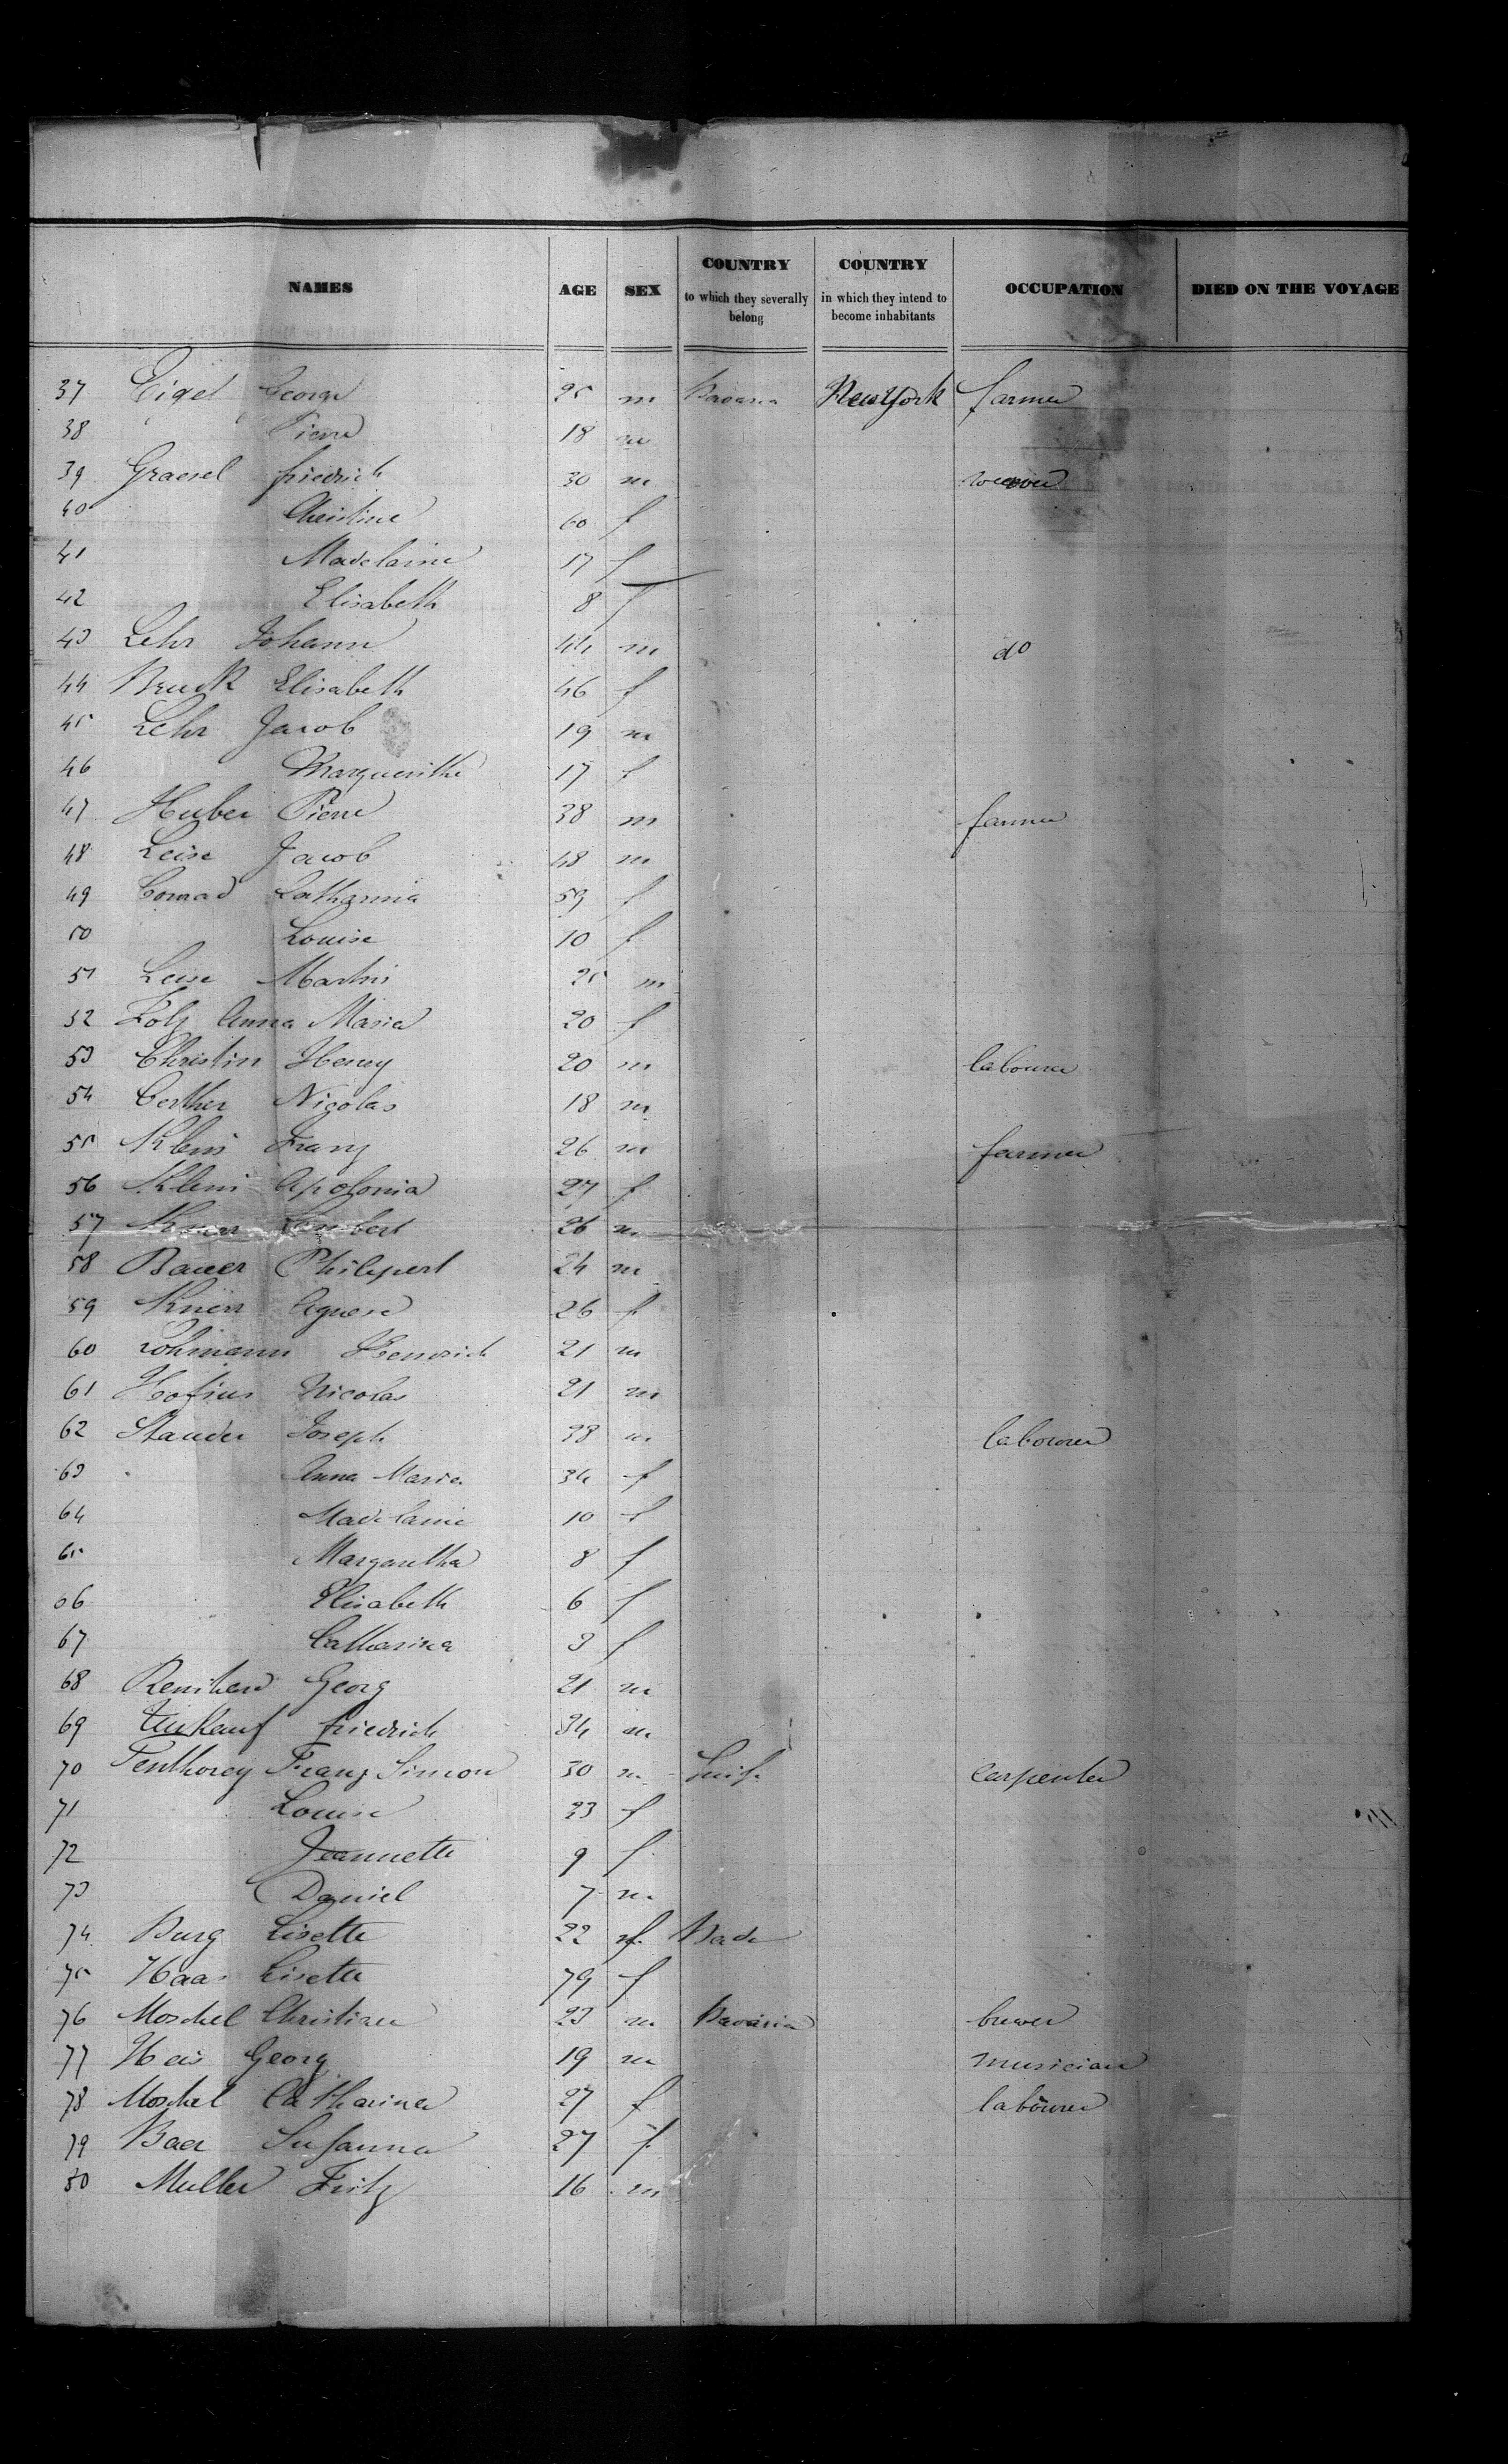 NAMES AGE SEX COUNTRY to which they severally belong COUNTRY in which they intend to become inhabitants OCCUPATION DIED ON THE VOYAGE
37 Eigel George 25 m Bavaria New York farmer
38 Pierre 18 m
39 Graesel friedrich 30 m weaver
40 Christine 60 f
41 Madelaine 17 f
42 Elisabeth 8 f
43 Lehr Johann 44 m do
44 Bruck Elisabeth 46 f
45 Lehr Jacob 19 m
46 Marguerithe 17 f
47 Huber Pierre 38 m farmer
48 Leise Jacob 48 m
49 Conrad Catharina 59 f
50 Louise 10 f
51 Leise Martin 25 m
52 Folz Anna Maria 20 f
53 Christin Henry 20 m labourer
54 Certher Nicolas 18 m
55 Klein Franz 26 m farmer
56 Klein Apolonia 27 f
57 Knerr 26 m
58 Bauer Philipert 24 m
59 Knerr Agnese 26 f
60 Lohmann Heinrich 21 m
61 Hofius Nicolas 21 m
62 Stauder Joseph 38 m labourer
63 Anna Maria 34 f
64 Madelaine 10 f
65 Margaretha 8 f
66 Elisabeth 6 f
67 Catharina 3 f
68 Reinhard Georg 21 m
69 friedrich 34 m
70 Penthorey Franz Simon 30 m Suisse carpenter
71 Louise 33 f
72 Jeannette 9 f
73 Daniel 7 m
74 Burg Lisette 22 f Bade
75 Haas Lisette 79 f
76 Moschel Christian 23 m Bavaria brewer
77 Heis Georg 19 m musician
78 Moschel Catharina 27 f labourer
79 Baer Susanna 27 f
80 Muller Fritz 16 m